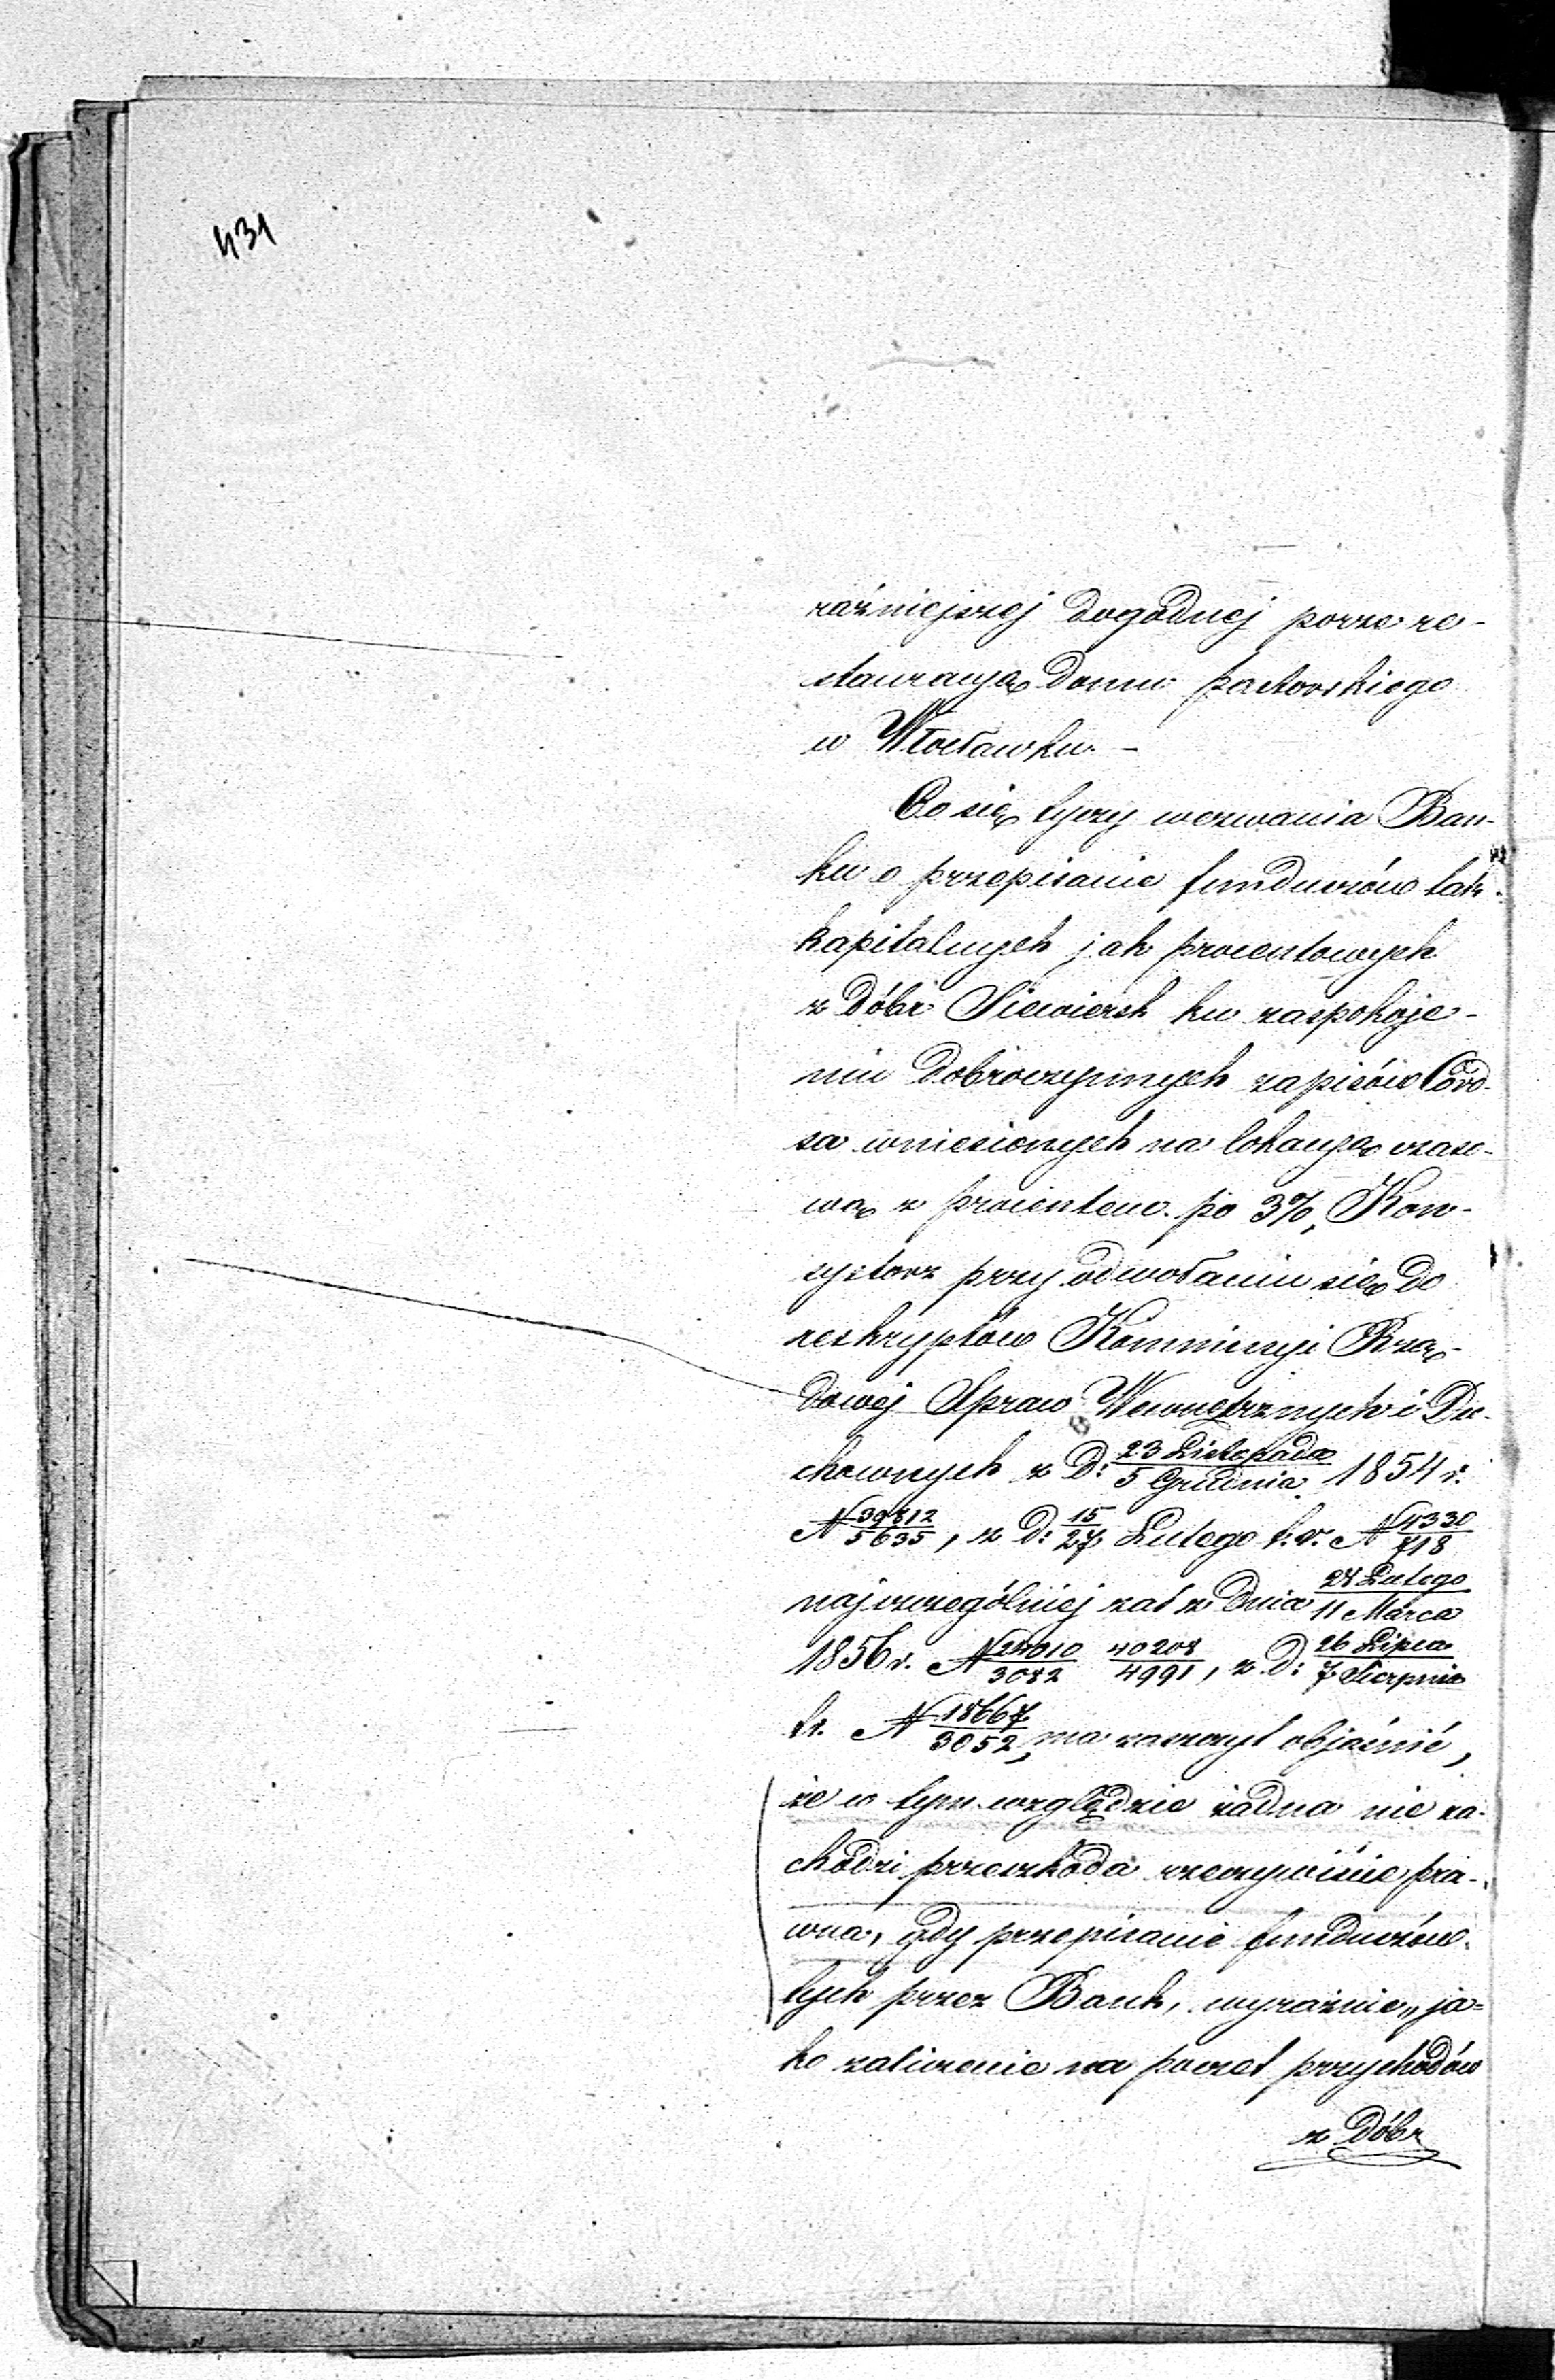 431
raźniejszej dogodnej porze re-
stauracyą domu pastorskiego
w Włocławku. -
Co się tyczy wezwania Ban-
ku o przepisanie funduszów tak
kapitalnych jak procentowych
z dóbr Siewiersk ku zaspokoje-
niu dobroczynnych zapisów
sa wniesionych na lokacyą czaso-
wą z procentem po 3%, Kon-
systorz przy odwołaniu się do
reskryptów Kommissyi Rzą-
dowej Spraw Wewnętrznych i Du-
chownych z D: 23 Listopada / 5 Grudnia 1854 r.
N 39812/5635, z D: 15/27 Lutego t. r. N 4330/718
najszczególniej zaś z Dnia 28 Lutego / 11 Marca
1856 r. N 24010/3082 40208/4991, z D: 26 Lipca / 7 Sierpnia
t. r. N 18667/3052, ma zaszczyt objaśnić,
że w tym względzie żadna nie za-
chodzi przeszkoda rzeczywiście pra-
wna, gdy przepisanie funduszów
tych przez Bank, wyraźnie „ja-
ko zaliczenie na poczet przychodów
z Dóbr